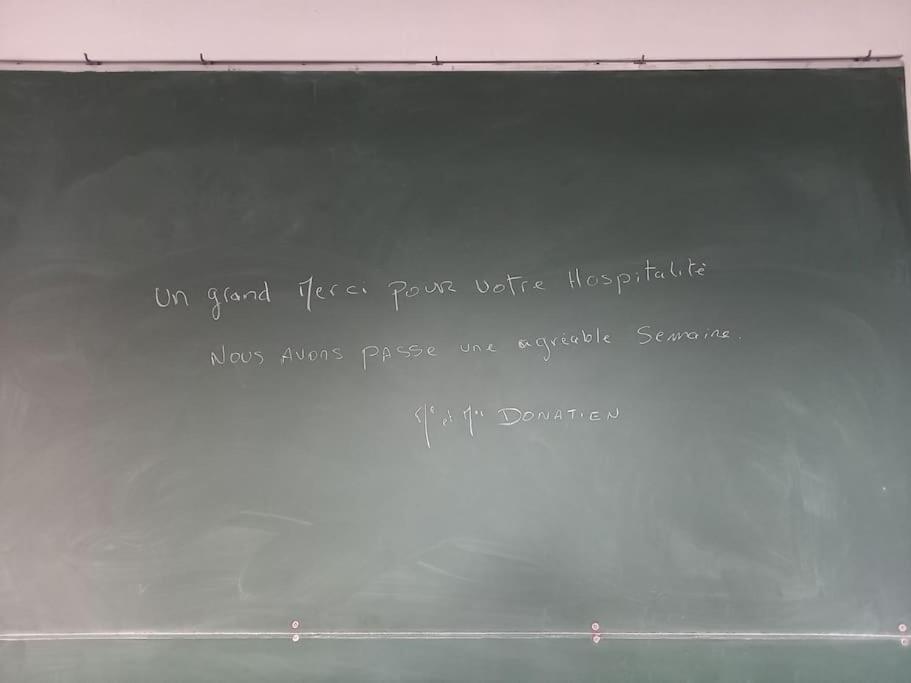 Un grand Merci pour votre Hospitalité
Nous Avons passe une agréable Semaine.
et DONATIEN